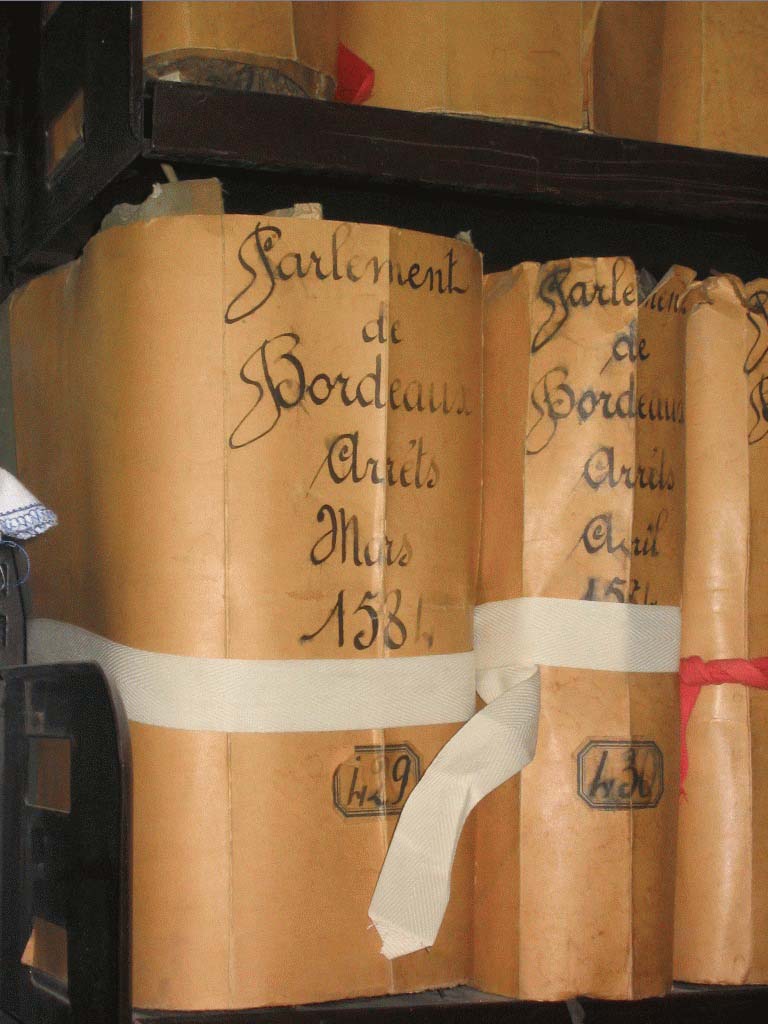 Parlement
de
Bordeaux
Arrêts
Mars
1584
429
Parlement
de
Bordeaux
Arrêts
Avril
1584
430